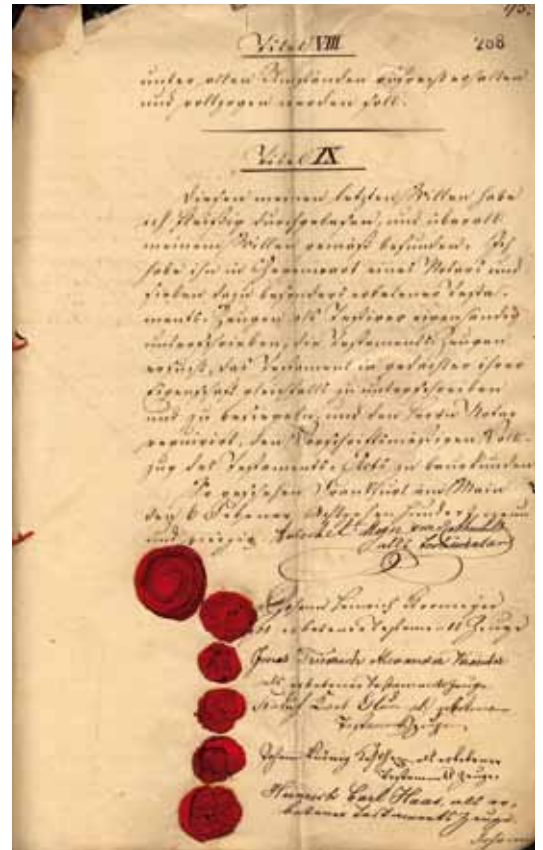 95.
Titel VIII 288
unter allen Umständen aufrecht erhalten
und vollzogen werden soll.
Titel IX
Diesen meinen letzten Willen habe
ich fleißig durchgelesen, und überall
meinem Willen gemäß befunden. Ich
habe ihn in Gegenwart eines Notars und
sieben dazu besonders erbetener Testa-
ments-Zeugen als Testirer eigenhändig
unterschrieben, die Testaments-Zeugen
ersucht, das Testament in gedachter ihrer
Eigenschaft gleichfalls zu unterschreiben
und zu besiegeln, und den Herrn Notar
requirirt, den vorschriftsmäßigen Voll-
zug des Testaments-Acts zu beurkunden
So geschehen Frankfurt am Main
den 6 Achtzehnhundert neun
und vierzig. Amschel Mayer von Rothschild
als
Johann Heinrich
als erbetener Testaments Zeuge
Alexander
als erbetener Testamentszeuge
Carl als erbetener
Testamentszeuge
Johann als erbetener
Testaments Zeuge
Carl Haas, als er-
betener Testaments Zeuge.
Johann